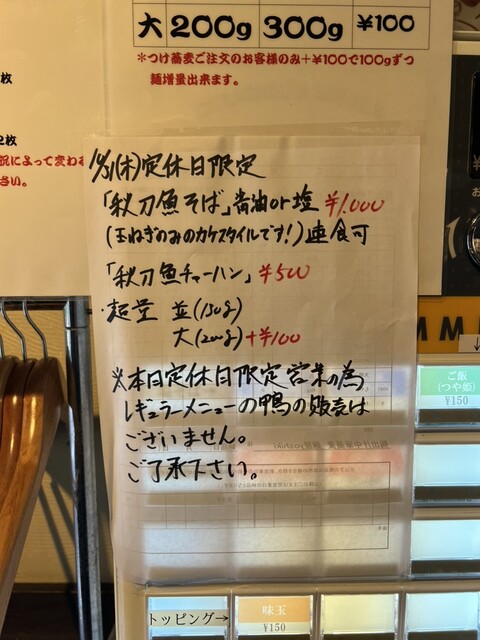 大 200g 300g ¥100
*つけ蕎麦ご注文のお客様のみ+¥100で100gずつ
麺増量出来ます。
枚
2枚
況によって変わる
さい。
10/31(木)定休日限定
「秋刀魚そば」醤油or塩 ¥1.000
(玉ねぎのみのカケスタイルです!)連食可
「秋刀魚チャーハン」¥500
・麺量 並(150g)
大(200g)+¥100
※本日定休日限定営業の為
レギュラーメニューの鴨の販売は
ございません。
ご了承下さい。
ご飯
(つや姫)
¥150
トッピング→
味玉
¥150